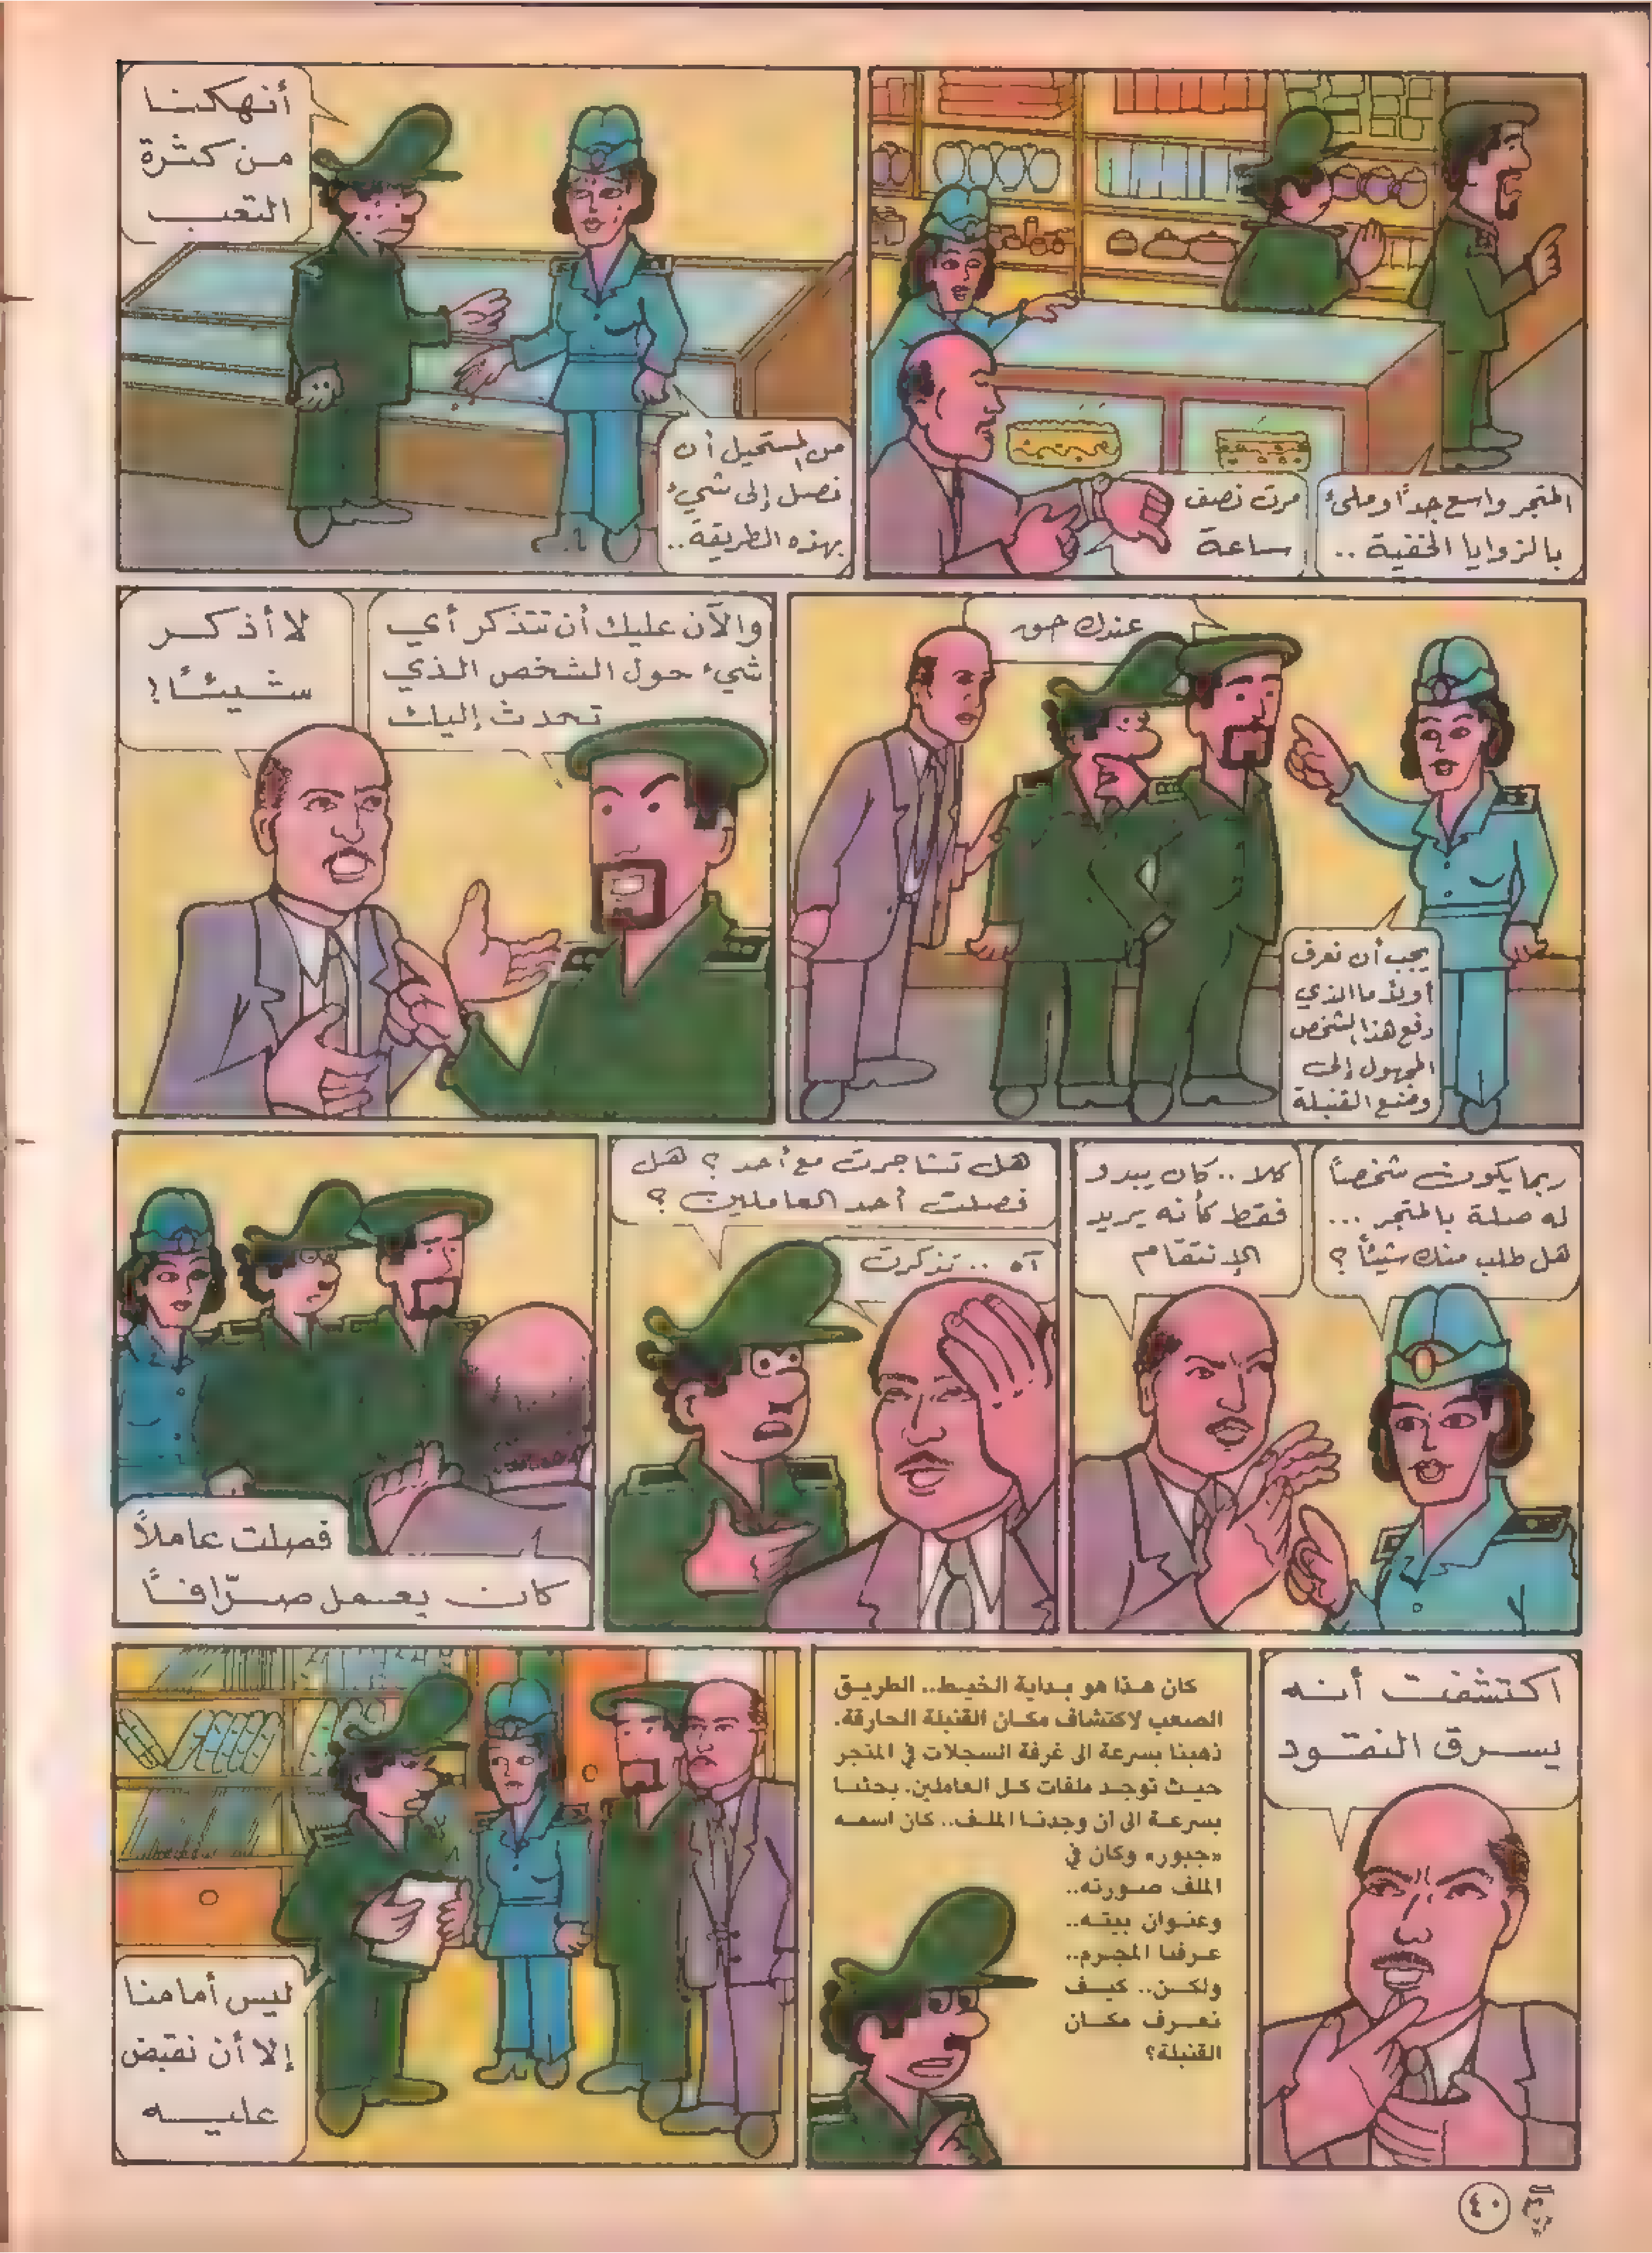 المتجر واسع جدًا وملئ
بالزوايا الخفية ..
مرت نصف
ساعة
أنهكنا
من كثرة
التعب
من المستحيل أن
نصل إلى شيء
بهذه الطريقة..
يجب أن نعرف
أولاً ما الذي
دفع هذا الشخص
المجهول إلى
وضع القنبلة
عندك حق
والآن عليك أن تتذكر أي
شيء حول الشخص الذي
تحدث إليك
لا أذكر
شيئًا!
ربما يكون شخصاً
له صلة بالمتجر ...
هل طلب منك شيئاً؟
كلا .. كان يبدو
فقط كأنه يريد
الإنتقام
هل تشاجرت مع أحد؟ هل
فصلت أحد العاملين؟
آه .. تذكرت
فصلت عاملاً
كان يعمل صرّافاً
اكتشفت أنه
يسرق النقود
كان هذا هو بداية الخيط.. الطريق
الصعب لاكتشاف مكان القنبلة الحارقة.
ذهبنا بسرعة الى غرفة السجلات في المتجر
حيث توجد ملفات كل العاملين. بحثنا
بسرعة الى أن وجدنا الملف.. كان اسمه
«جبور» وكان في
الملف صورته..
وعنوان بيته..
عرفنا المجرم..
ولكن.. كيف
نعرف مكان
القنبلة؟
ليس أمامنا
إلا أن نقبض
عليه
٤٠